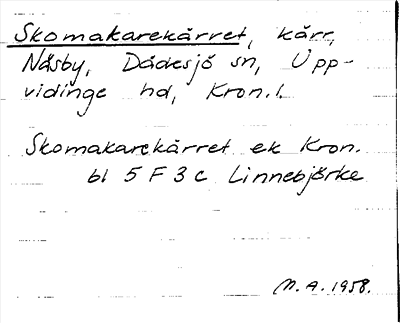 Skomakarekärret, kärr,
Näsby, Dädesjö sn, Upp-
vidinge hd, Kron.l.
Skomakarekärret ek Kron.
bl 5 F 3 c Linnebjörke
M.A. 1958.